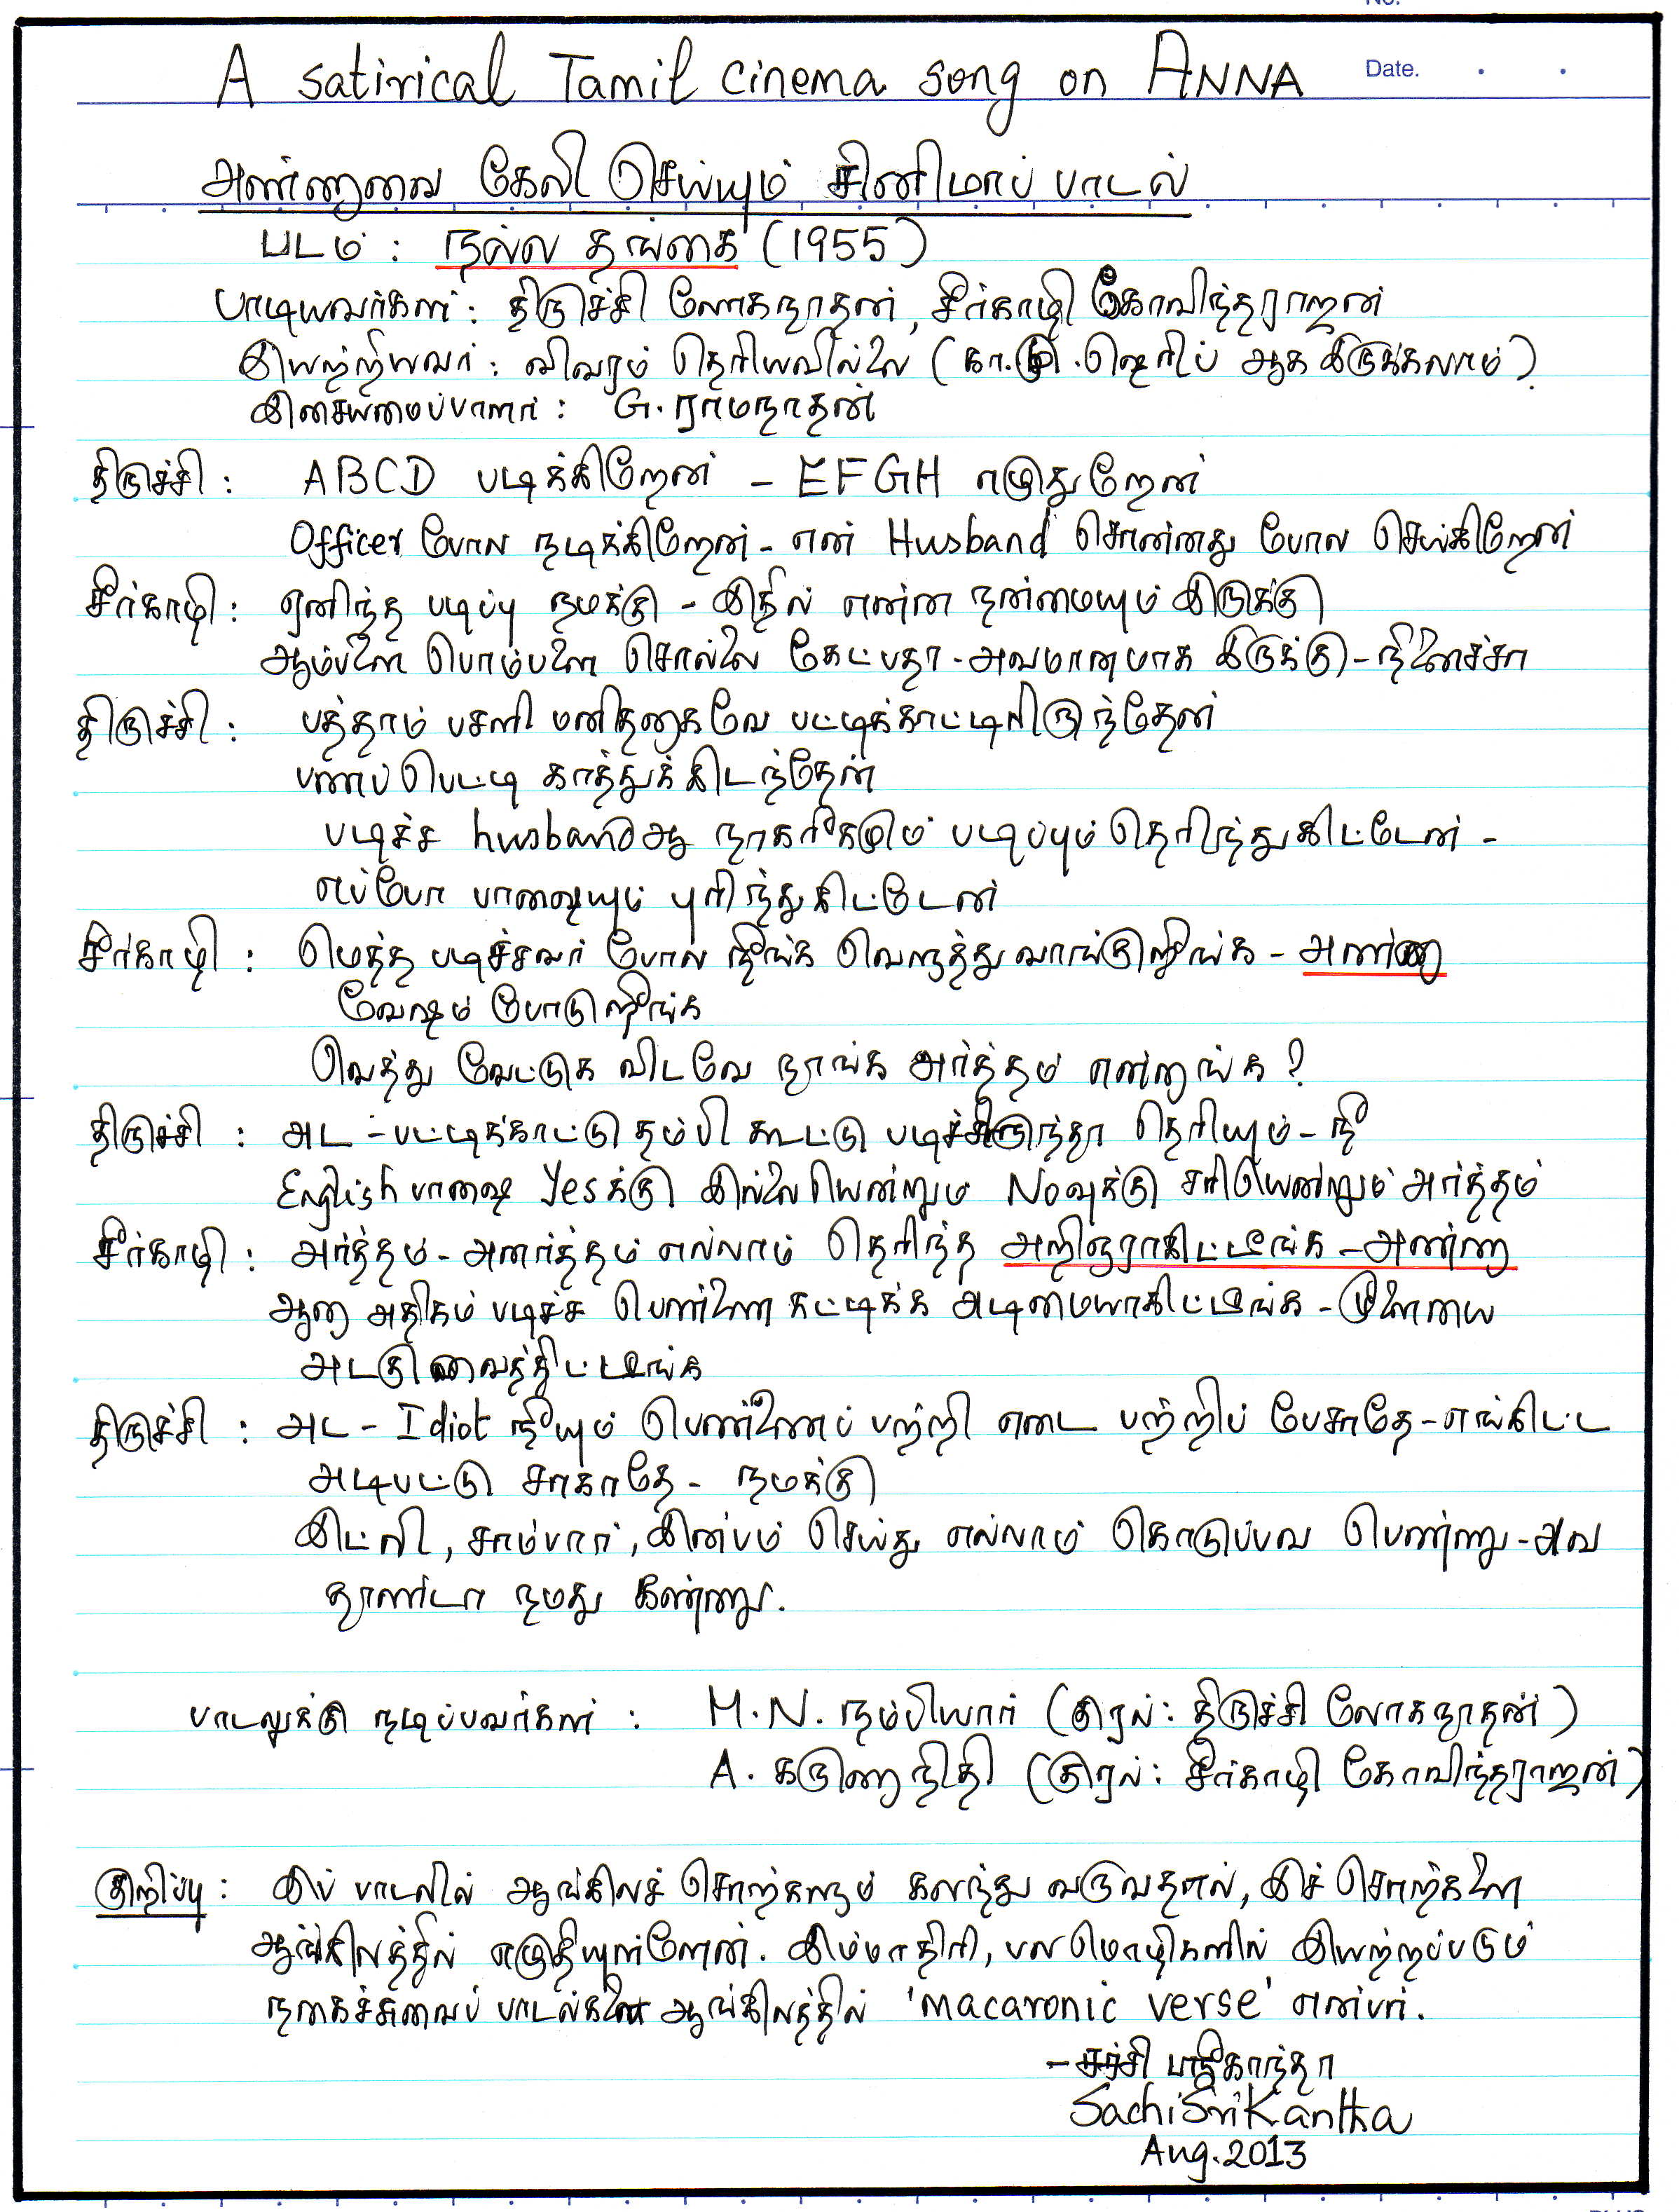 No.
Date.
A satirical Tamil cinema song on ANNA
அண்ணாவை கேலி செய்யும் சினிமாப் பாடல்
படம் : நல்ல தங்கை (1955)
பாடியவர்கள் : திருச்சி லோகநாதன், சீர்காழி கோவிந்தராஜன்
இயற்றியவர் : விவரம் தெரியவில்லை (கா.மு.ஷெரிப் ஆக இருக்கலாம்)
இசையமைப்பாளர் : G. ராமநாதன்
திருச்சி : ABCD படிக்கிறேன் - EFGH எழுதுறேன்
Officer போல நடிக்கிறேன் - என் Husband சொன்னது போல செய்கிறேன்
சீர்காழி : ஏனிந்த படிப்பு நமக்கு - இதில் என்ன நன்மையும் இருக்கு
ஆம்பளை பொம்பளை சொல்லை கேட்பதா - அவமானமாக இருக்கு - நினைச்சா
திருச்சி : பத்தாம் பசளி மனிதனாகவே பட்டிக்காட்டிலிருந்தேன்
பணப் பெட்டி காத்துக்கிடந்தேன்
படிச்ச husband ஆ நாகரிகமும் படிப்பும் தெரிந்துகிட்டேன் -
எப்போ பாஷையும் புரிந்துகிட்டேன்
சீர்காழி : மெத்த படிச்சவர் போல நீங்க வெளுத்து வாங்குறீங்க - அண்ணா
வேஷம் போடுறீங்க
வெத்து வேட்டுக விடவே நாங்க அர்த்தம் என்னாங்க ?
திருச்சி : அட - பட்டிக்காட்டு தம்பி கூட்டு படிச்சிருந்தா தெரியும் - நீ
English பாஷை Yesக்கு இல்லையென்றும் Noவுக்கு சரியென்றும் அர்த்தம்
சீர்காழி : அர்த்தம் - அனர்த்தம் எல்லாம் தெரிந்த அறிஞராகிட்டீங்க - அண்ணா
ஆனா அதிகம் படிச்ச பெண்ணை கட்டிக்க அடிமையாகிட்டீங்க - மூளையை
அடகு வைத்திட்டீங்க
திருச்சி : அட - Idiot நீயும் பெண்ணைப் பற்றி எடை பற்றிப் பேசாதே - எங்கிட்ட
அடிபட்டு சாகாதே - நமக்கு
இட்லி, சாம்பார், இன்பம் செய்து எல்லாம் கொடுப்பவ பெண்ணு - அவ
தாண்டா நமது கண்ணு.
பாடலுக்கு நடிப்பவர்கள் : M.N. நம்பியார் (குரல் : திருச்சி லோகநாதன்)
A. கருணாநிதி (குரல் : சீர்காழி கோவிந்தராஜன்)
குறிப்பு : இப் பாடலில் ஆங்கிலச் சொற்களும் கலந்து வருவதால், இச் சொற்களை
ஆங்கிலத்தில் எழுதியுள்ளேன். இம்மாதிரி, பல மொழிகளில் இயற்றப்படும்
நகைச்சுவைப் பாடல்களை ஆங்கிலத்தில் 'macaronic verse' என்பர்.
- சச்சி ஸ்ரீகாந்தா
Sachi Sri Kantha
Aug. 2013